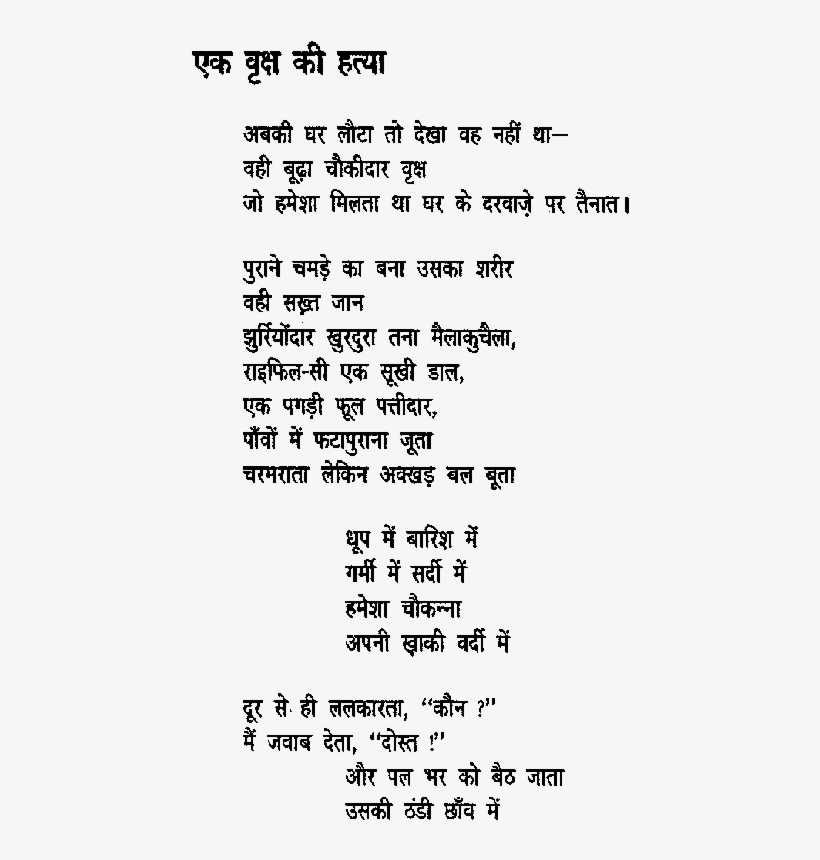 एक वृक्ष की हत्या
अबकी घर लौटा तो देखा वह नहीं था—
वही बूढ़ा चौकीदार वृक्ष
जो हमेशा मिलता था घर के दरवाज़े पर तैनात।
पुराने चमड़े का बना उसका शरीर
वही सख़्त जान
झुर्रियोंदार खुरदुरा तना मैलाकुचैला,
राइफिल-सी एक सूखी डाल,
एक पगड़ी फूल पत्तीदार,
पाँवों में फटापुराना जूता
चरमराता लेकिन अक्खड़ बल बूता
धूप में बारिश में
गर्मी में सर्दी में
हमेशा चौकन्ना
अपनी ख़ाकी वर्दी में
दूर से ही ललकारता, “कौन ?”
मैं जवाब देता, “दोस्त !”
और पल भर को बैठ जाता
उसकी ठंडी छाँव में